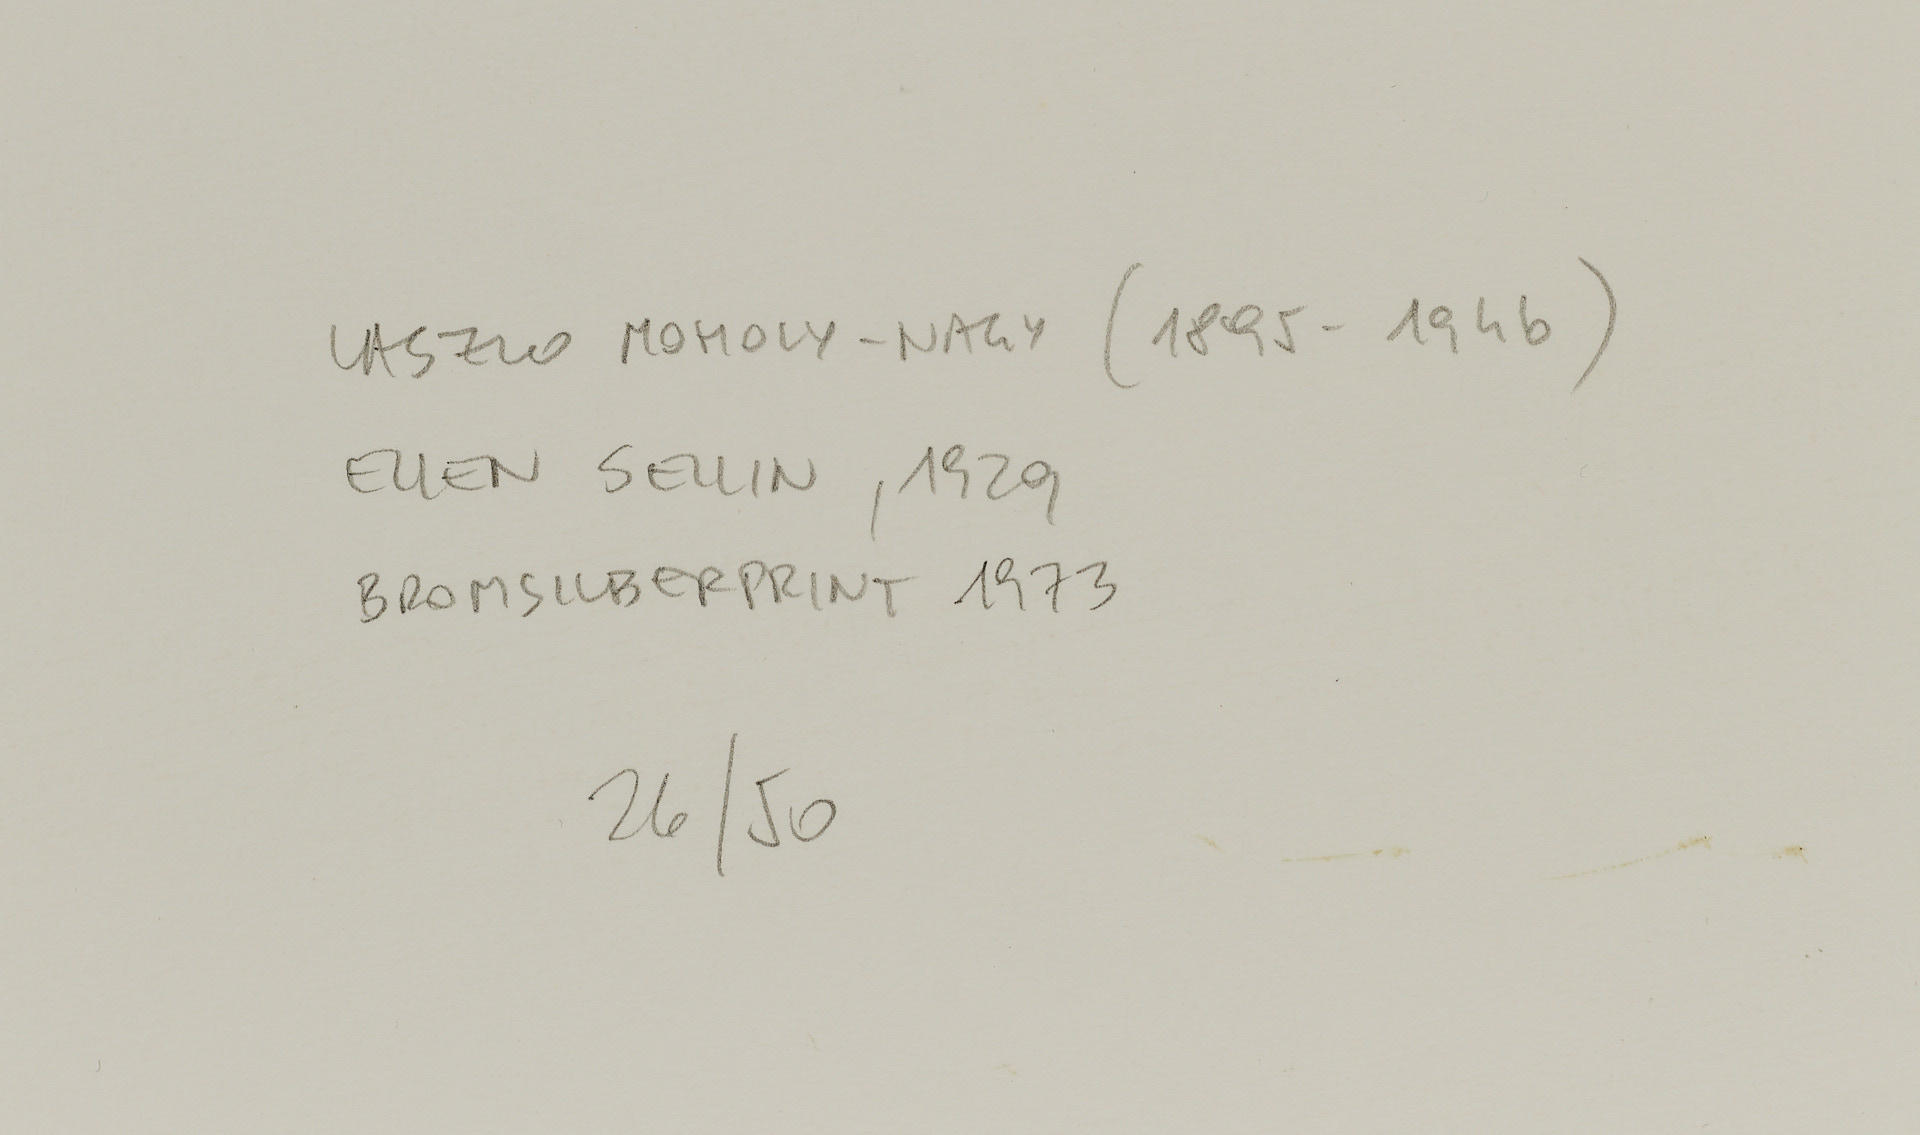 LASZLO MOHOLY-NAGY (1895-1946)
ELLEN SELLIN, 1929
BROMSILBERPRINT 1973
26/50